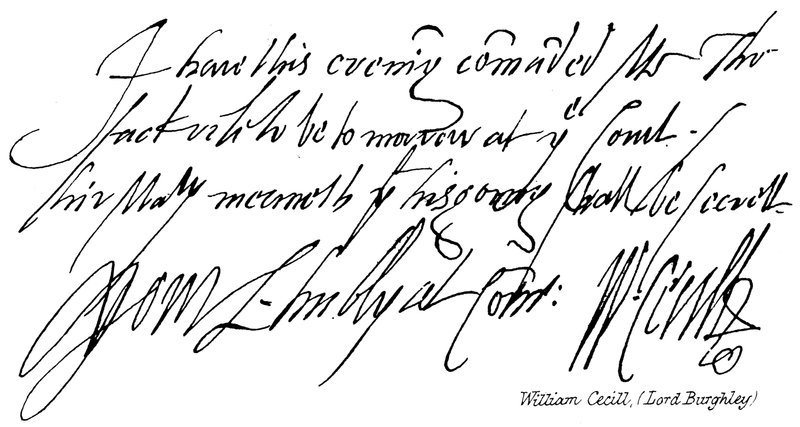 I have this evenīg cōmāded Mr Tho
Sackvill to be to morrow at yͤ Court -
hir Maty meaneth yt his goīg shall be secrett
Your L. hūbly at Com̄: W. Cecill
William Cecill, (Lord Burghley)